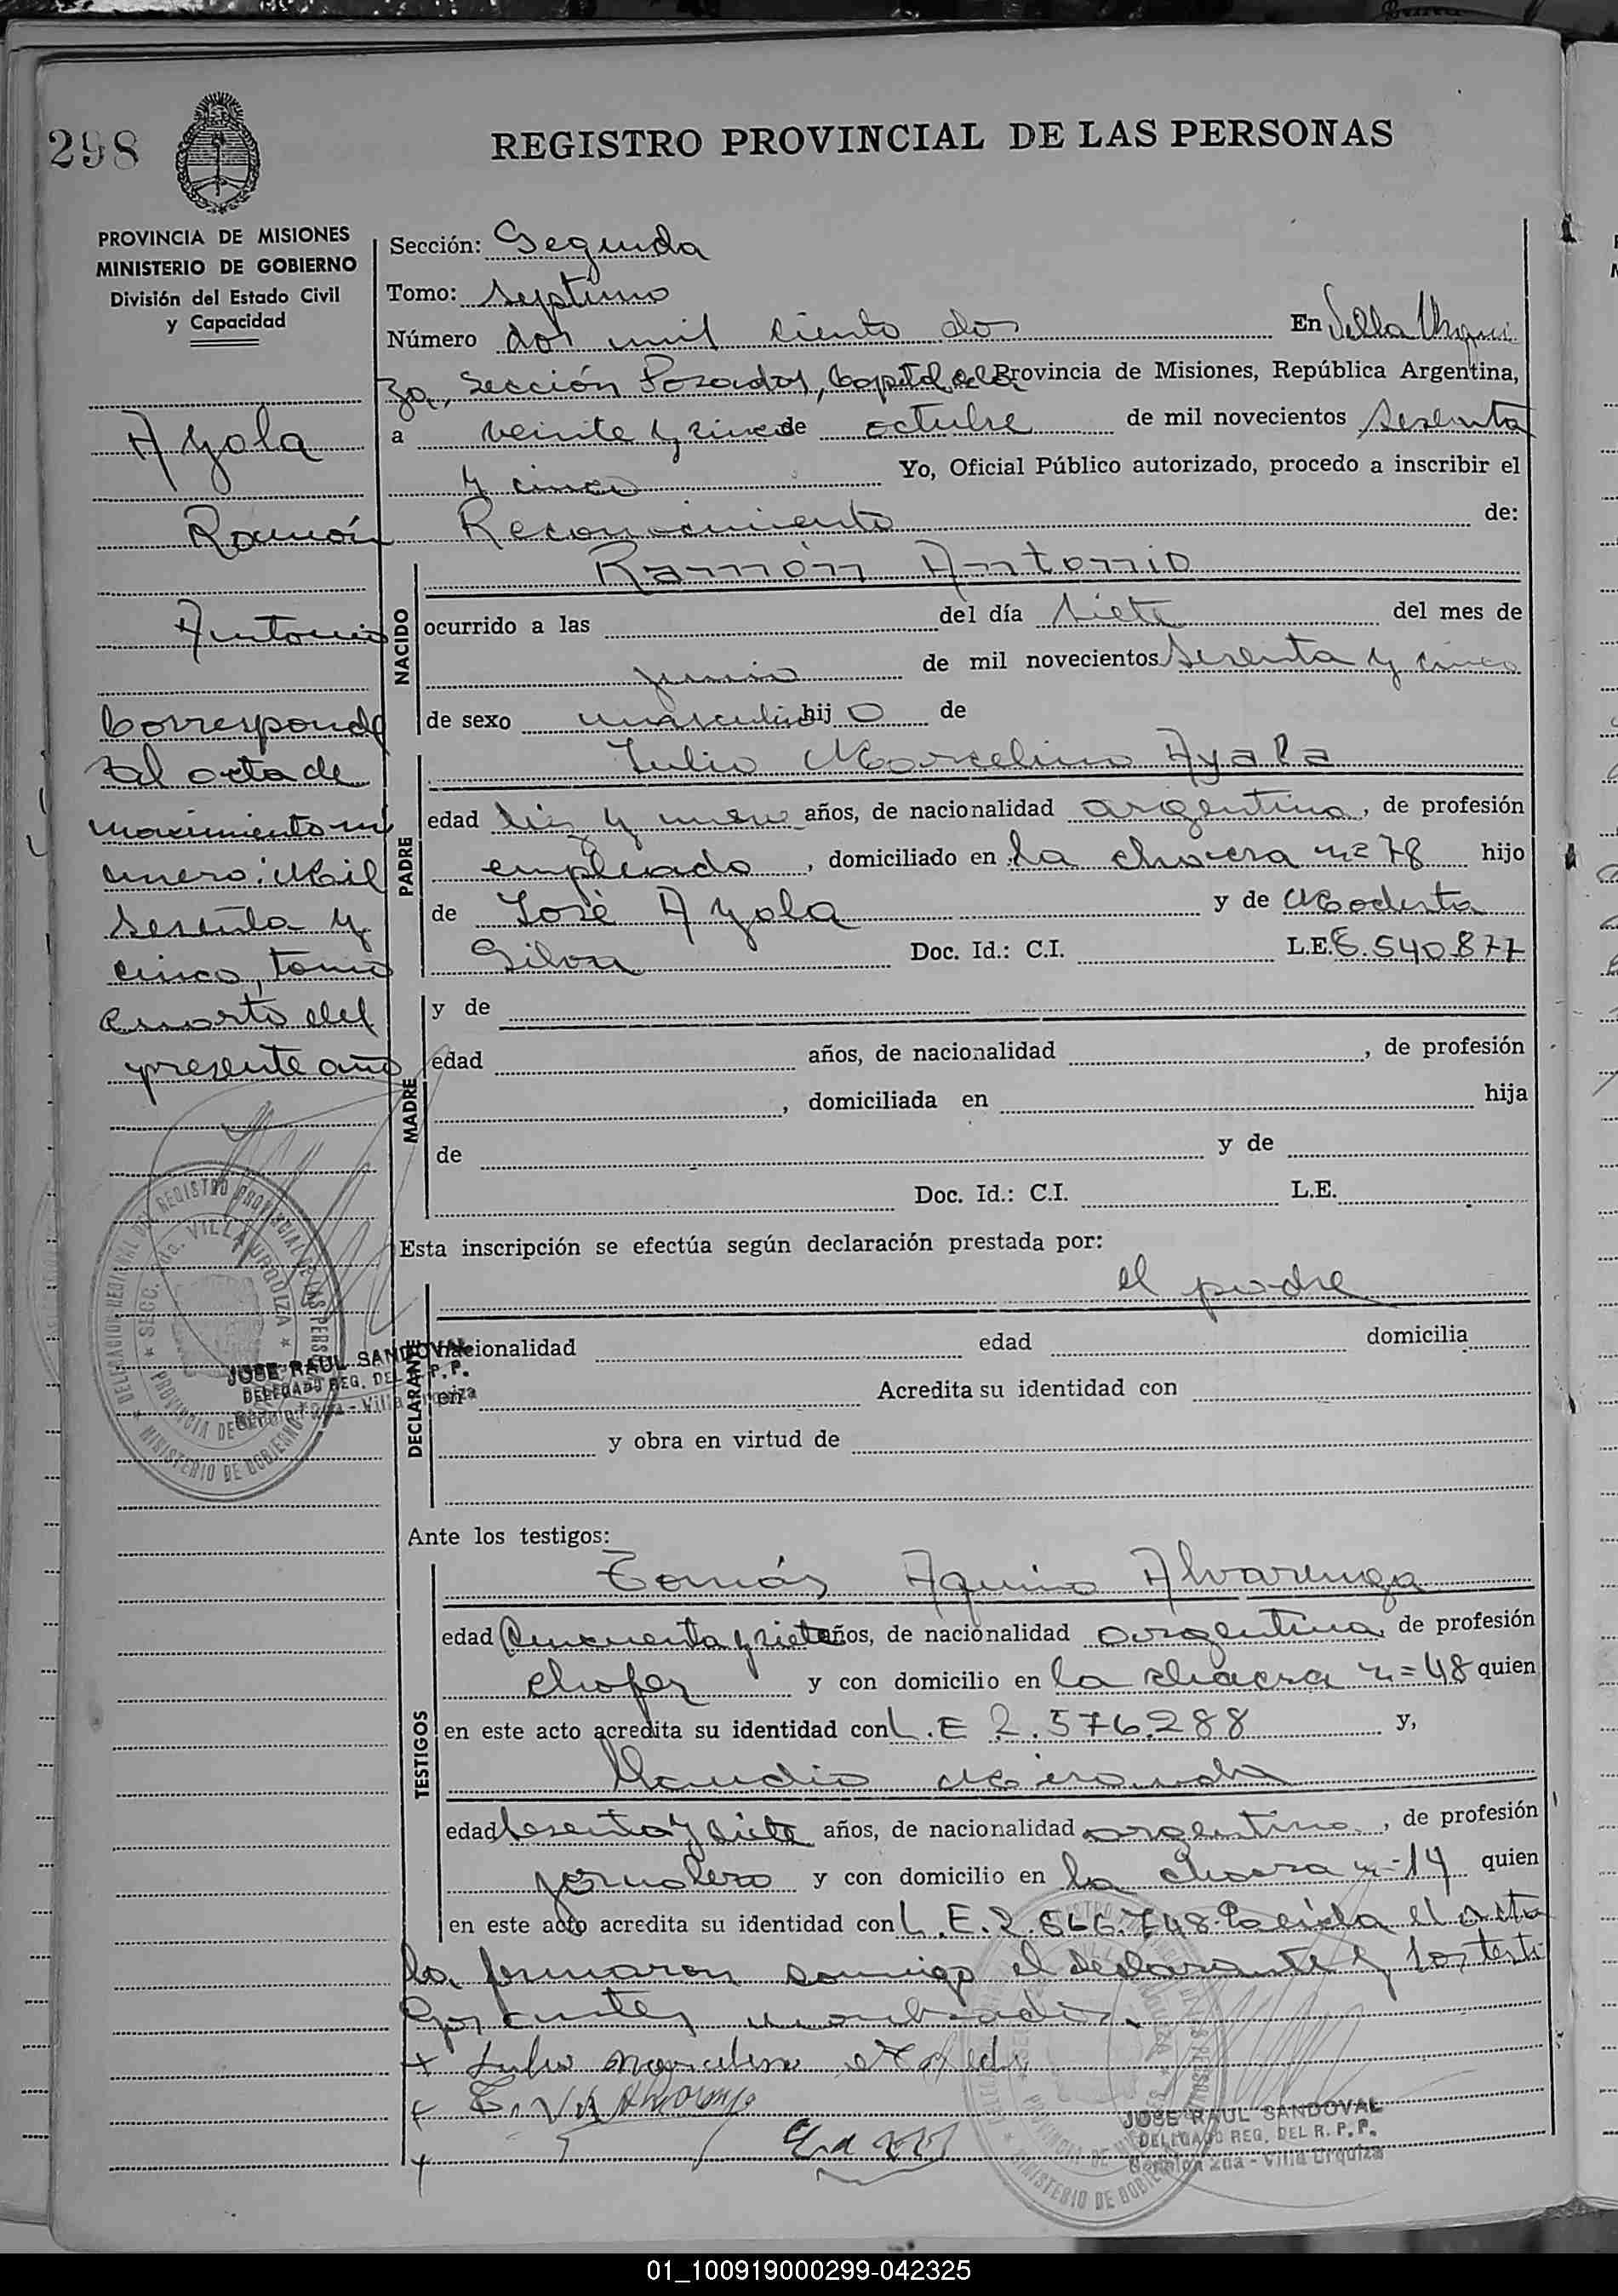 298
REGISTRO PROVINCIAL DE LAS PERSONAS
PROVINCIA DE MISIONES
MINISTERIO DE GOBIERNO
División del Estado Civil
y Capacidad
Ayala
Ramón
Antonio
Corresponde
al acta de
nacimiento nú
mero: Mil
sesenta y
cinco, tomo
cuarto del
presente año
DELEGACION REGIONAL DEL REGISTRO PROVINCIAL DE LAS PERSONAS
SECC. 2da. VILLA URQUIZA
PROVINCIA DE
MINISTERIO DE GOBIERNO
JOSE RAUL SANDOVAL
DELEGADO REG. DEL R. P. P.
Sección 2da - Villa Urquiza
Sección: Segunda
Tomo: Septimo
Número dos mil ciento dos En Villa Urqui
za, Sección Posadas, Capital de la Provincia de Misiones, República Argentina,
a veinte y cinco de octubre de mil novecientos sesenta
y cinco Yo, Oficial Público autorizado, procedo a inscribir el
Reconocimiento de:
NACIDO
Ramón Antonio
ocurrido a las del día siete del mes de
junio de mil novecientos sesenta y cinco
de sexo masculino hijo de
PADRE
Julio Marcelino Ayala
edad y años, de nacionalidad argentina, de profesión
empleado, domiciliado en la chacra nº 78 hijo
de José Ayala y de Modesta
Silva Doc. Id.: C.I. L.E. 8.540.877
MADRE
y de
edad años, de nacionalidad , de profesión
, domiciliada en hija
de y de
Doc. Id.: C.I. L.E.
Esta inscripción se efectúa según declaración prestada por:
DECLARANTE
el padre
nacionalidad edad domicilia
en Acredita su identidad con
y obra en virtud de
Ante los testigos:
TESTIGOS
Tomás Aquino Alvarenga
edad Cincuenta y siete años, de nacionalidad argentina, de profesión
chofer y con domicilio en la chacra nº 48 quien
en este acto acredita su identidad con L.E 2.576.288 y,
Claudio Miranda
edad sesenta y siete años, de nacionalidad argentina, de profesión
jornalero y con domicilio en la chacra nº 14 quien
en este acto acredita su identidad con L.E. 2.566.748. Leida el acta
la firmaron conmigo el declarante y los testi
gos antes nombrados.
+ Julio Marcelino
JOSE RAUL SANDOVAL
DELEGADO REG. DEL R. P. P.
Sección 2da - Villa Urquiza
01_100919000299-042325